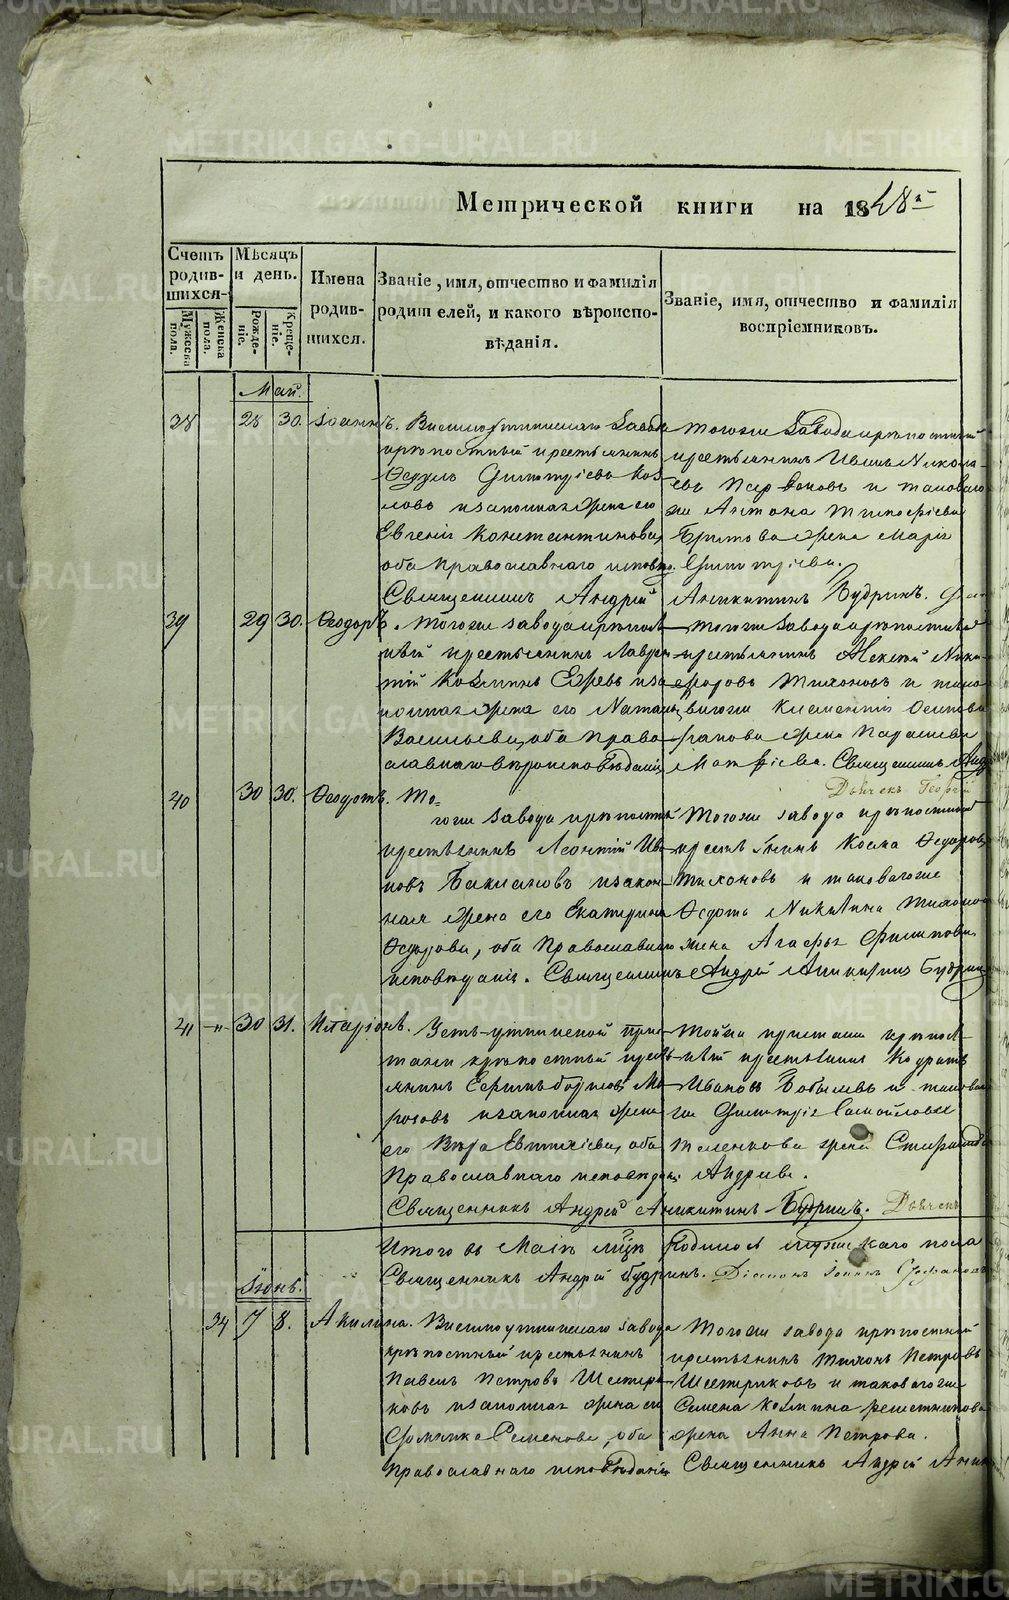 Метрической книги на 1848й
Счетъ родив-шихся
Мужеска пола.
Женска пола.
Мѣсяцъ и день.
Рожде-ніе.
Креще-ніе.
Имена родив-шихся.
Званіе, имя, отчество и фамилія
родителей, и какого вѣроиспо-
вѣданія.
Званіе, имя, отчество и фамилія
воспріемниковъ.
Май.
38 28 30. Іоаннъ.
крѣпостный крестьянинъ
Димитріевъ Коз
ловъ и законная жена его
Евгенія Константинова,
оба Православнаго исповѣд.
Священникъ Андрей
Тогоже Завода крѣпостный
крестьянинъ Иванъ Никола-
евъ и таковаго
же Антона Тимофеева
жена Марія
Димитріева.
Аникитинъ Будринъ.
39 29 30. Ѳеодоръ. Тогоже завода крѣпост
ный крестьянинъ Лаврен
тій Козминъ и за
конная жена его Наталья
Васильева, оба Право
славнаго вѣроисповѣданія
Тогоже Завода крѣпостный
крестьянинъ Алексѣй Ники-
форовъ Тихоновъ и тако
вагоже Климентія Осипова
жена Параскева
Матфіева. Священникъ Анд
40 30 30. Ѳеодотъ. То-
гоже завода крѣпостный
крестьянинъ Леонтій Ива
новъ и закон
ная жена его Екатерина
Ѳедорова, оба Православнаго
исповѣданія. Священникъ Андрей Аникитинъ Будринъ
Дьячекъ Георгій
Тогоже завода крѣпостный
крестьянинъ Козма Ѳедоровъ
Тихоновъ и таковагоже
Ѳедота Никитина Тихонова
жена Агафья Филипова
41 -"- 30 31. Иларіонъ. Усть-уткинской при-
стани крѣпостный кресть
янинъ Ефимъ Борисовъ Мо
розовъ и законная жена
его Вѣра Евтихіева, оба
Православнаго исповѣданія
Священникъ Андрей Аникитинъ Будринъ. Дьячекъ
Тойже пристани крѣпост
ный крестьянинъ Кодратъ
Ивановъ Бобылевъ и таковаго
же Димитрія Самойлова
жена Стефанида
Андреева.
Итого въ Маіѣ мцѣ Родилося мужескаго пола
Священникъ Андрей Будринъ. Діаконъ Іоаннъ
Іюнь.
34 7 8. Акилина. Висимоуткинскаго завода
крѣпостный крестьянинъ
Павелъ Петровъ Шестери
ковъ и законная жена его
Семенова, оба
Православнаго исповѣданія
Тогоже завода крѣпостный
крестьянинъ Тихонъ Петровъ
Шестериковъ и таковагоже
Семена Козмина Решетникова
жена Анна Петрова.
Священникъ Андрей Аник
METRIKI.GASO-URAL.RU